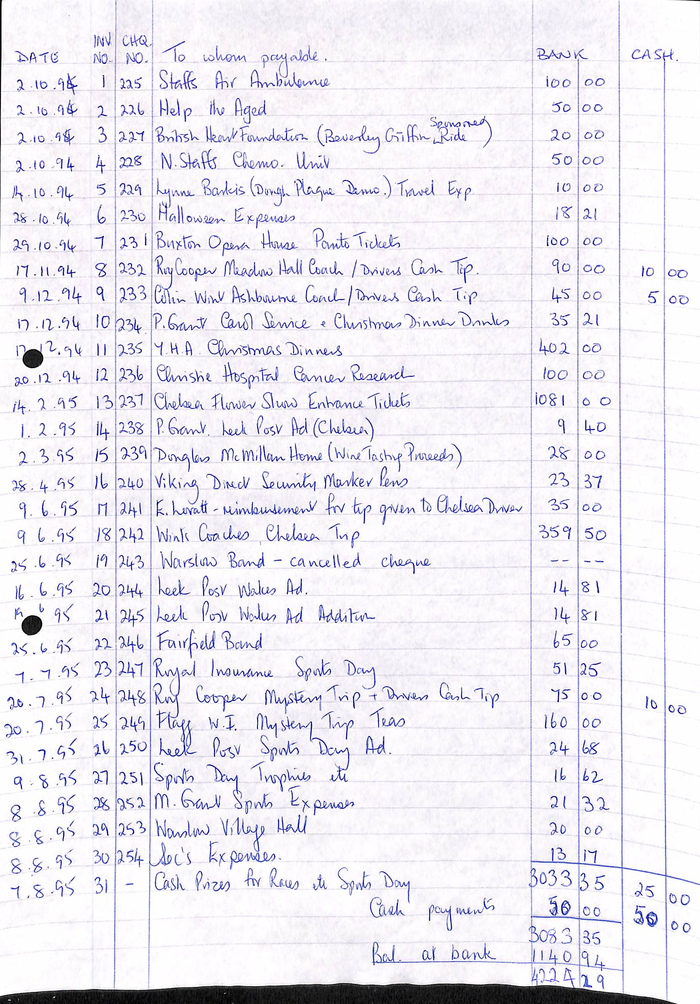 DATE INV NO. CHQ. NO. To whom payable. BANK CASH.
2.10.94 1 225 Staffs Air Ambulance 100 00
2.10.94 2 226 Help the Aged 50 00
2.10.94 3 227 British Heart Foundation (Beverley Griffin Sponsored Ride) 20 00
2.10.94 4 228 N. Staffs Chemo. Unit 50 00
14.10.94 5 229 Lynne Barkis (Dough Plaque Demo.) Travel Exp 10 00
28.10.94 6 230 Halloween Expenses 18 21
29.10.94 7 231 Buxton Opera House Panto Tickets 100 00
17.11.94 8 232 Roy Cooper Meadow Hall Coach / Drivers Cash Tip. 90 00 10 00
9.12.94 9 233 Colin Wint Ashbourne Coach / Drivers Cash Tip 45 00 5 00
17.12.94 10 234 P. Grant Carol Service & Christmas Dinner Drinks 35 21
12.94 11 235 Y.H.A. Christmas Dinners 402 00
20.12.94 12 236 Christie Hospital Cancer Research 100 00
14.2.95 13 237 Chelsea Flower Show Entrance Tickets 1081 00
1.2.95 14 238 P. Grant. Leek Post Ad (Chelsea) 9 40
2.3.95 15 239 Douglas McMillan Home (Wine Tasting Proceeds) 28 00
28.4.95 16 240 Viking Direct Security Marker Pens 23 37
9.6.95 17 241 E. Lovatt - reimbursement for tip given to Chelsea Driver 35 00
9 6.95 18 242 Wints Coaches, Chelsea Trip 359 50
25.6.95 19 243 Warslow Band - cancelled cheque -- --
16.6.95 20 244 Leek Post Wakes Ad. 14 81
6 95 21 245 Leek Post Wakes Ad Addition 14 81
25.6.95 22 246 Fairfield Band 65 00
7.7.95 23 247 Royal Insurance Sports Day 51 25
20.7.95 24 248 Roy Cooper Mystery Trip + Drivers Cash Tip 75 00 10 00
20.7.95 25 249 Flagg W.I. Mystery Trip Teas 160 00
31.7.95 26 250 Leek Post Sports Day Ad. 24 68
9.8.95 27 251 Sports Day Trophies etc 16 62
8.8.95 28 252 M. Grant Sports Expenses 21 32
8.8.95 29 253 Warslow Village Hall 20 00
8.8.95 30 254 Sec's Expenses. 13 17
7.8.95 31 - Cash Prizes for Races etc Sports Day 3033 35 25 00
Cash payments 50 00 50 00
3083 35
Bal. at bank 1140 94
4224 29